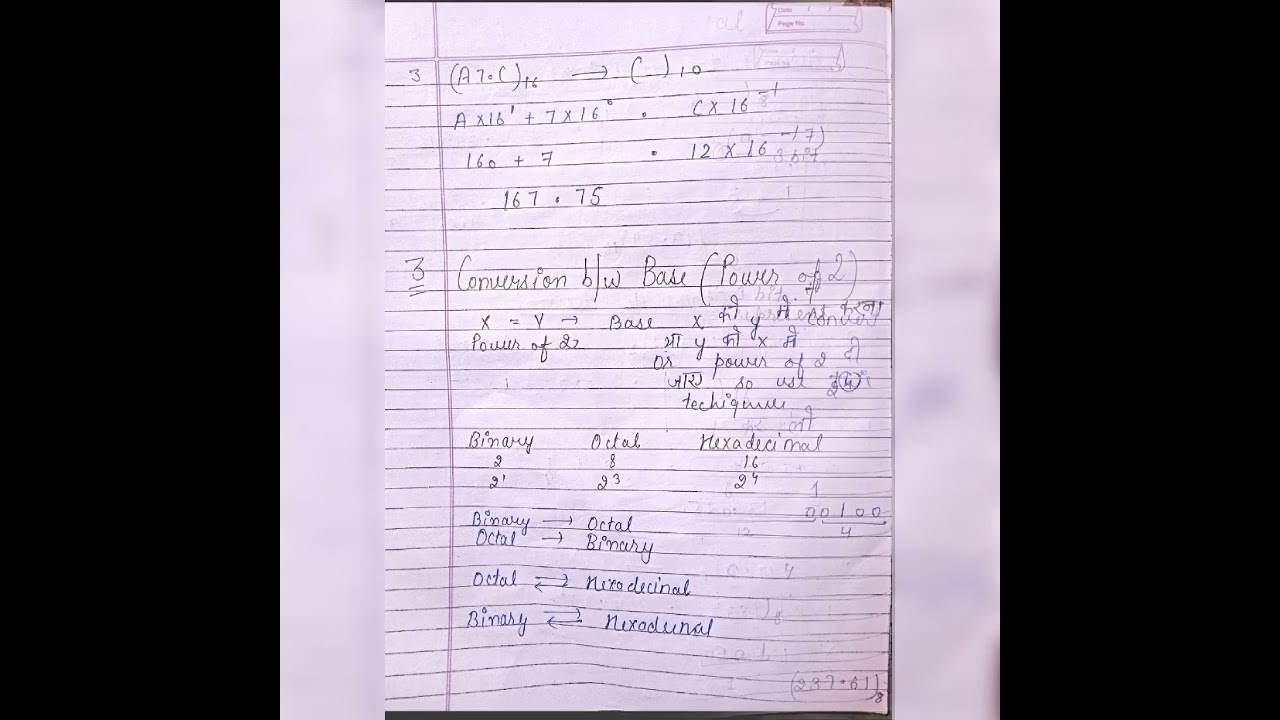 Date
Page No.
3 (A7.C)₁₆ → ( )₁₀
A×16¹ + 7×16⁰ . C×16⁻¹
160 + 7 . 12×16⁻¹
167.75
3 Conversion b/w Base (Power of 2)
X = Y → Base X को y में करना
Power of 2 या y को X में
or power of 2 दी
जाए so use
techiques
Binary Octal Hexadecimal
2 8 16
2¹ 2³ 2⁴
00100
4
Binary → Octal
Octal → Binary
Octal ⇄ Hexadecinal
Binary ⇄ Hexadecinal
(237.61)₈